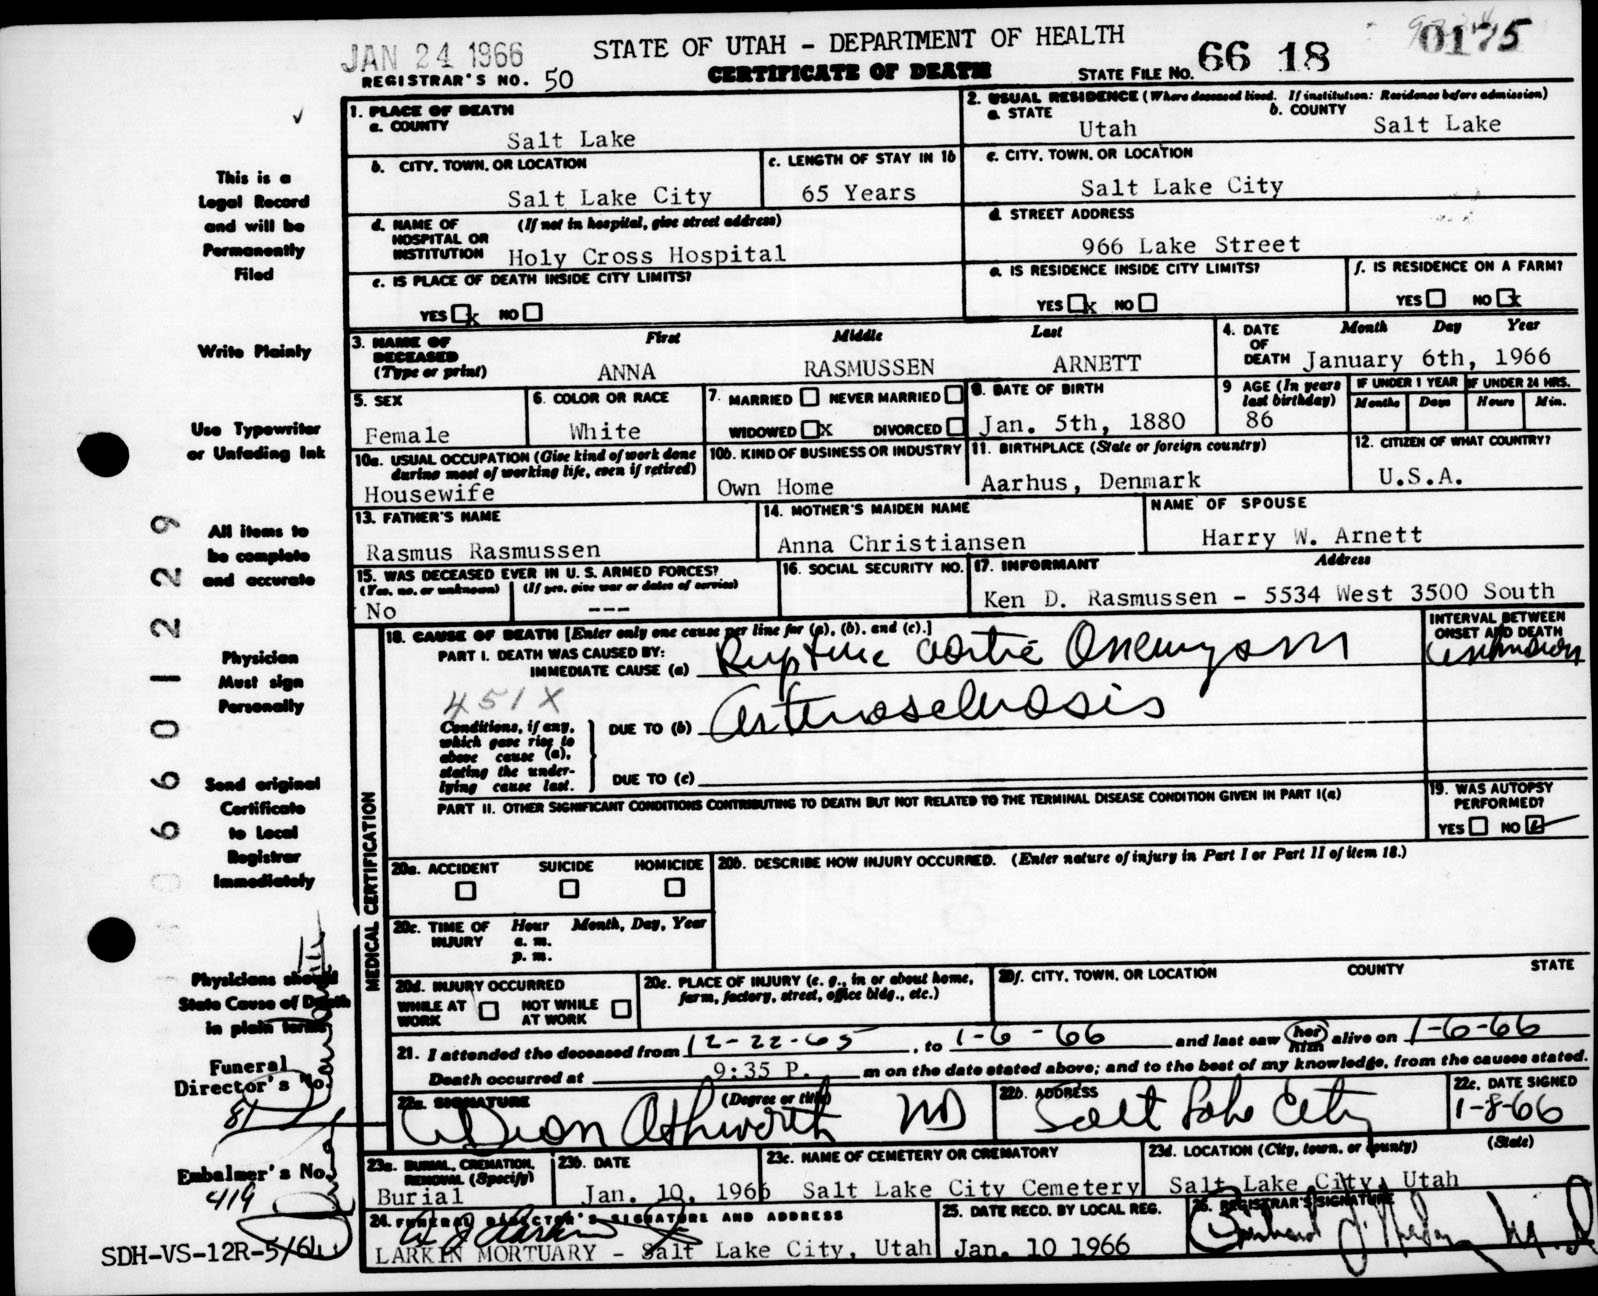 JAN 24 1966
STATE OF UTAH - DEPARTMENT OF HEALTH
CERTIFICATE OF DEATH
REGISTRAR'S NO. 50
STATE FILE NO. 66 18 0175
1. PLACE OF DEATH
a. COUNTY
Salt Lake
2. USUAL RESIDENCE (Where deceased lived. If institution: Residence before admission)
a. STATE
Utah
b. COUNTY
Salt Lake
b. CITY, TOWN, OR LOCATION
Salt Lake City
c. LENGTH OF STAY IN 1b
65 Years
c. CITY, TOWN, OR LOCATION
Salt Lake City
d. NAME OF HOSPITAL OR INSTITUTION (If not in hospital, give street address)
Holy Cross Hospital
d. STREET ADDRESS
966 Lake Street
e. IS PLACE OF DEATH INSIDE CITY LIMITS?
YES x NO
e. IS RESIDENCE INSIDE CITY LIMITS?
YES x NO
f. IS RESIDENCE ON A FARM?
YES NO x
3. NAME OF DECEASED (Type or print)
First Middle Last
ANNA RASMUSSEN ARNETT
4. DATE OF DEATH
Month Day Year
January 6th, 1966
5. SEX
Female
6. COLOR OR RACE
White
7. MARRIED NEVER MARRIED
WIDOWED X DIVORCED
8. DATE OF BIRTH
Jan. 5th, 1880
9 AGE (In years last birthday)
86
IF UNDER 1 YEAR
Months Days
IF UNDER 24 HRS.
Hours Min.
10a. USUAL OCCUPATION (Give kind of work done during most of working life, even if retired)
Housewife
10b. KIND OF BUSINESS OR INDUSTRY
Own Home
11. BIRTHPLACE (State or foreign country)
Aarhus, Denmark
12. CITIZEN OF WHAT COUNTRY?
U.S.A.
13. FATHER'S NAME
Rasmus Rasmussen
14. MOTHER'S MAIDEN NAME
Anna Christiansen
NAME OF SPOUSE
Harry W. Arnett
15. WAS DECEASED EVER IN U. S. ARMED FORCES?
(Yes, no, or unknown) (If yes, give war or dates of service)
No ---
16. SOCIAL SECURITY NO.
17. INFORMANT Address
Ken D. Rasmussen - 5534 West 3500 South
MEDICAL CERTIFICATION
18. CAUSE OF DEATH [Enter only one cause per line for (a), (b), and (c).]
PART I. DEATH WAS CAUSED BY:
IMMEDIATE CAUSE (a) Rupture aortic Aneurysm
INTERVAL BETWEEN ONSET AND DEATH
451X
Conditions, if any, which gave rise to above cause (a), stating the underlying cause last.
DUE TO (b) Arteriosclerosis
DUE TO (c)
PART II. OTHER SIGNIFICANT CONDITIONS CONTRIBUTING TO DEATH BUT NOT RELATED TO THE TERMINAL DISEASE CONDITION GIVEN IN PART I(a)
19. WAS AUTOPSY PERFORMED?
YES NO
20a. ACCIDENT SUICIDE HOMICIDE
20b. DESCRIBE HOW INJURY OCCURRED. (Enter nature of injury in Part I or Part II of item 18.)
20c. TIME OF INJURY
Hour Month, Day, Year
a. m.
p. m.
20d. INJURY OCCURRED
WHILE AT WORK NOT WHILE AT WORK
20e. PLACE OF INJURY (e. g., in or about home, farm, factory, street, office bldg., etc.)
20f. CITY, TOWN, OR LOCATION COUNTY STATE
21. I attended the deceased from 12-22-65, to 1-6-66 and last saw her him alive on 1-6-66
Death occurred at 9:35 P. m on the date stated above; and to the best of my knowledge, from the causes stated.
22a. SIGNATURE (Degree or title)
Dean Ashworth MD
22b. ADDRESS
Salt Lake City
22c. DATE SIGNED
1-8-66
23a. BURIAL, CREMATION, REMOVAL (Specify)
Burial
23b. DATE
Jan. 10, 1966
23c. NAME OF CEMETERY OR CREMATORY
Salt Lake City Cemetery
23d. LOCATION (City, town, or county) (State)
Salt Lake City, Utah
24. FUNERAL DIRECTOR'S SIGNATURE AND ADDRESS
LARKIN MORTUARY - Salt Lake City, Utah
25. DATE RECD. BY LOCAL REG.
Jan. 10 1966
26. REGISTRAR'S SIGNATURE
This is a
Legal Record
and will be
Permanently
Filed
Write Plainly
Use Typewriter
or Unfading Ink
All items to
be complete
and accurate
Physician
Must sign
Personally
Send original
Certificate
to Local
Registrar
Immediately
Physicians should
State Cause of Death
in plain terms
Funeral
Director's No.
81
Embalmer's No.
419
SDH-VS-12R-5/64
6601229